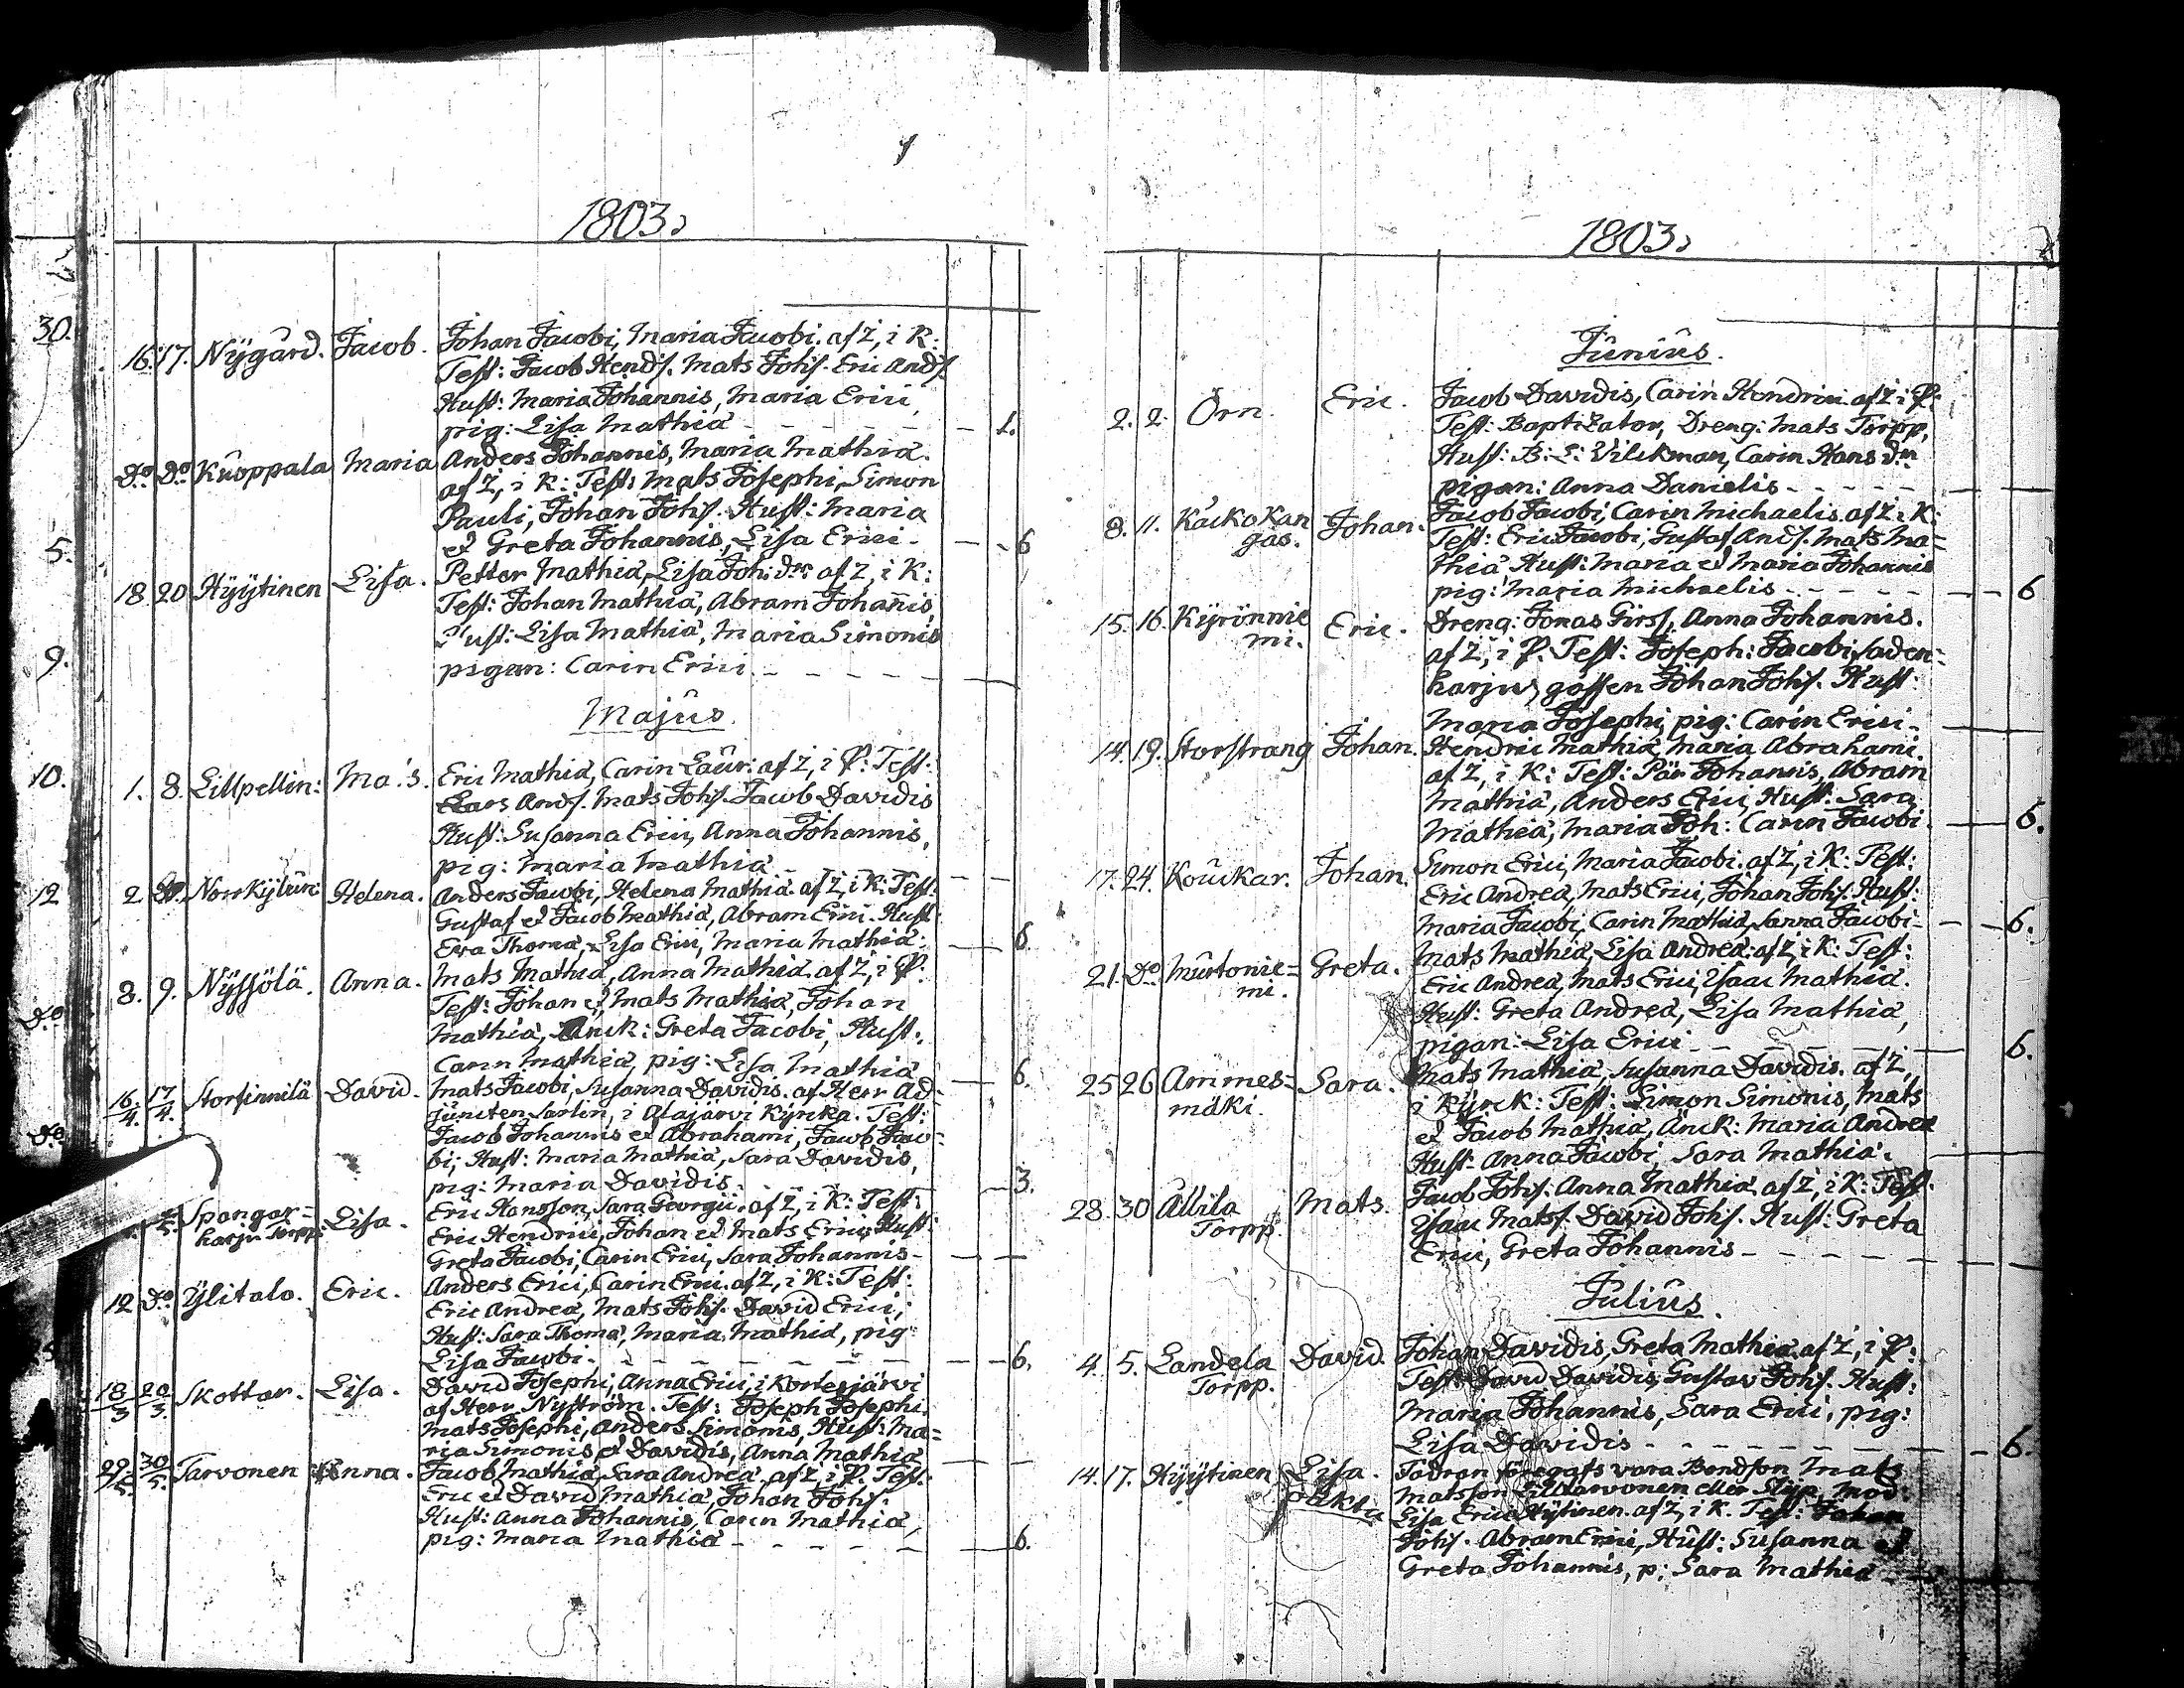 1803.
16. 17. Nÿgård. Jacob. Johan Jacobi, Maria Jacobi. af Z, i K:
Test: Jacob Hends. Mats Johs. Eric Ands.
Hust: Maria Johannis, Maria Erici,
pig: Lisa Mathiæ - - - 1.
Do Do Kuoppala Maria Anders Johannis, Maria Mathiæ.
af Z, i K: Test: Mats Josephi, Simon
Pauli, Johan Johs. Hust: Maria
et Greta Johannis, Lisa Erici. - - 6
18 20 Hÿÿtinen Lisa. Petter Mathiæ, Lisa Joh: dr. af Z, i K:
Test: Johan Mathiæ, Abram Johannis,
Hust: Lisa Mathiæ, Maria Simonis
pigan: Carin Erici - - -
Majus.
1. 8. Lillpellin: Mats. Eric Mathiæ, Carin Laur: af Z, i P: Test:
Lars Ands. Mats Johs. Jacob Davidis
Hust: Susanna Erici, Anna Johannis,
pig: Maria Mathiæ - - -
2 Do. Norrkÿlun: Helena. Anders Jacobi, Helena Mathiæ. af Z, i K: Test:
Gustaf et Jacob Mathiæ, Abram Erici. Hust:
Eva Thomæ, Lisa Erici, Maria Mathiæ: - 6
8. 9. Nÿssölä. Anna. Mats Mathiæ, Anna Mathiæ. af Z, i P:
Test: Johan et Mats Mathiæ, Johan
Mathiæ, Änck: Greta Jacobi, Hust:
Carin Mathiæ, pig: Lisa Mathiæ - 6.
16/4. 17/4. Storfinnilä David. Mats Jacobi, Susanna Davidis. af Herr Ad-
juncten Sarlin, i Alajärvi Kÿrcka. Test:
Jacob Johannis et Abrahami, Jacob Jaco-
bi, Hust: Maria Mathiæ, Sara Davidis,
pig: Maria Davidis. - - 3.
5. Spangar=
harju Torpp: Lisa. Eric Hansson, Sara Georgii. af Z, i K: Test:
Eric Hendrici, Johan et Mats Erici, Hust:
Greta Jacobi, Carin Erici, Sara Johannis -
12 Do Ÿlitalo. Eric. Anders Erici, Carin Erici. af Z, i K: Test:
Eric Andreæ, Mats Johs. David Erici,
Hust: Sara Thomæ, Maria Mathiæ, pig:
Lisa Jacobi. - - - 6.
18/3 20/3. Skottar. Lisa. David Josephi, Anna Erici, i Kortesjärvi
af Herr Nyström. Test: Joseph Josephi
Mats Josephi, Anders Simonis, Hust: Ma=
ria Simonis et Davidis, Anna Mathiæ
29/5. 30/5. Tarvonen Anna. Jacob Mathiæ, Sara Andreæ. af Z, i P. Test:
Eric et David Mathiæ, Johan Johs.
Hust: Anna Johannis, Carin Mathiæ,
pig: Maria Mathiæ - - - 6.
1803.
Junius.
2. 2. Örn. Eric. Jacob Davidis, Carin Hendrici. af Z i P:
Test: Baptizator, Dreng: Mats Torpp,
Hust: B: L: Wilckman, Carin Hans dr.
pigan: Anna Danielis - - -
8. 11. Kackokan
gas. Johan. Jacob Jacobi, Carin Michaelis. af Z i K:
Test: Eric Jacobi, Gustaf Ands. Mats Ma=
thiæ Hust: Maria et Maria Johannis
pig: Maria Michaelis - - - 6
15. 16. Kÿrönnie
mi. Eric. Dreng: Jonas Girss, Anna Johannis.
af Z, i P. Test: Joseph: Jacobi Saden=
harju, gossen Johan Johs. Hust:
Maria Josephi, pig: Carin Erici -
14. 19. Storstrang Johan. Hendric Mathiæ, Maria Abrahami.
af Z, i K: Test: Pär Johannis, Abram
Mathiæ, Anders Erici, Hust: Sara
Mathiæ, Maria Joh: Carin Jacobi. - 6.
17. 24. Koukar. Johan. Simon Erici, Maria Jacobi. af Z, i K: Test:
Eric Andreæ, Mats Erici, Johan Johs. Hust:
Maria Jacobi, Carin Mathiæ, Sanna Jacobi - 6.
21. Do Murtonie=
mi. Greta. Mats Mathiæ, Lisa Andreæ. af Z, i K: Test:
Eric Andreæ, Mats Erici, Isaac Mathiæ.
Hust: Greta Andreæ, Lisa Mathiæ,
pigan: Lisa Erici - - - 6.
25 26 Ammes=
mäki. Sara. Mats Mathiæ, Susanna Davidis. af Z,
i Kÿrck: Test: Simon Simonis, Mats
et Jacob Mathiæ, Änck: Maria Andreæ
Hust: Anna Jacobi, Sara Mathiæ.
28. 30 Allila
Torpp. Mats. Jacob Johs. Anna Mathiæ. af Z, i K: Test:
Isaac Mats. David Johs. Hust: Greta
Erici, Greta Johannis - - -
Julius.
4. 5. Landela
Torpp. David. Johan Davidis, Greta Mathiæ. af Z, i P:
Test: David Davidis, Gustav Johs. Hust:
Maria Johannis, Sara Erici, pig:
Lisa Davidis - - - 6.
14. 17. Hÿÿtinen Lisa. Fadren föregafs vara Bondson Mats
oäkta Matsson Lilltarvonen eller Slip. Mod:
Lisa Erici Hÿtinen. af Z, i K. Test: Johan
Johs. Abram Erici, Hust: Susanna et
Greta Johannis, p: Sara Mathiæ
30.
5.
9.
10.
12
Do
Do